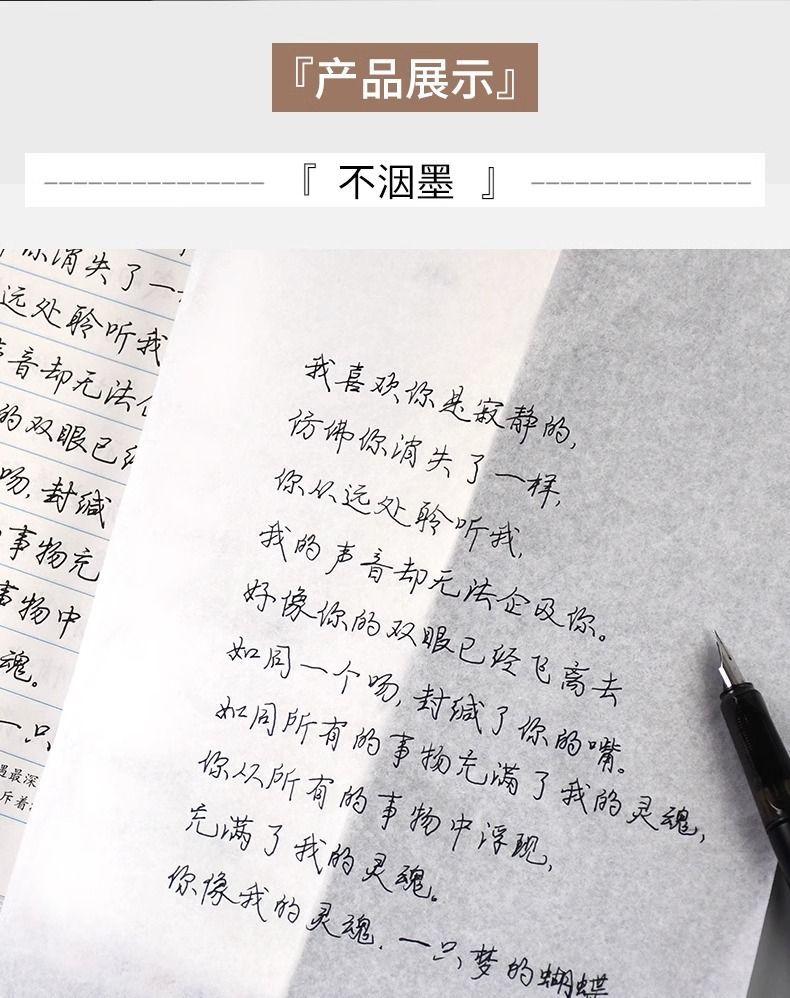 『产品展示』
『 不洇墨 』
我喜欢你是寂静的,
仿佛你消失了一样,
你从远处聆听我,
我的声音却无法企及你。
好像你的双眼已经飞离去
如同一个吻,封缄了你的嘴。
如同所有的事物充满了我的灵魂,
你从所有的事物中浮现,
充满了我的灵魂。
你像我的灵魂.一只梦的蝴蝶
你消失了一
远处聆听我
音却无法企
的双眼已经
吻,封缄
事物充
事物中
魂。
一只
遇最深
斥着